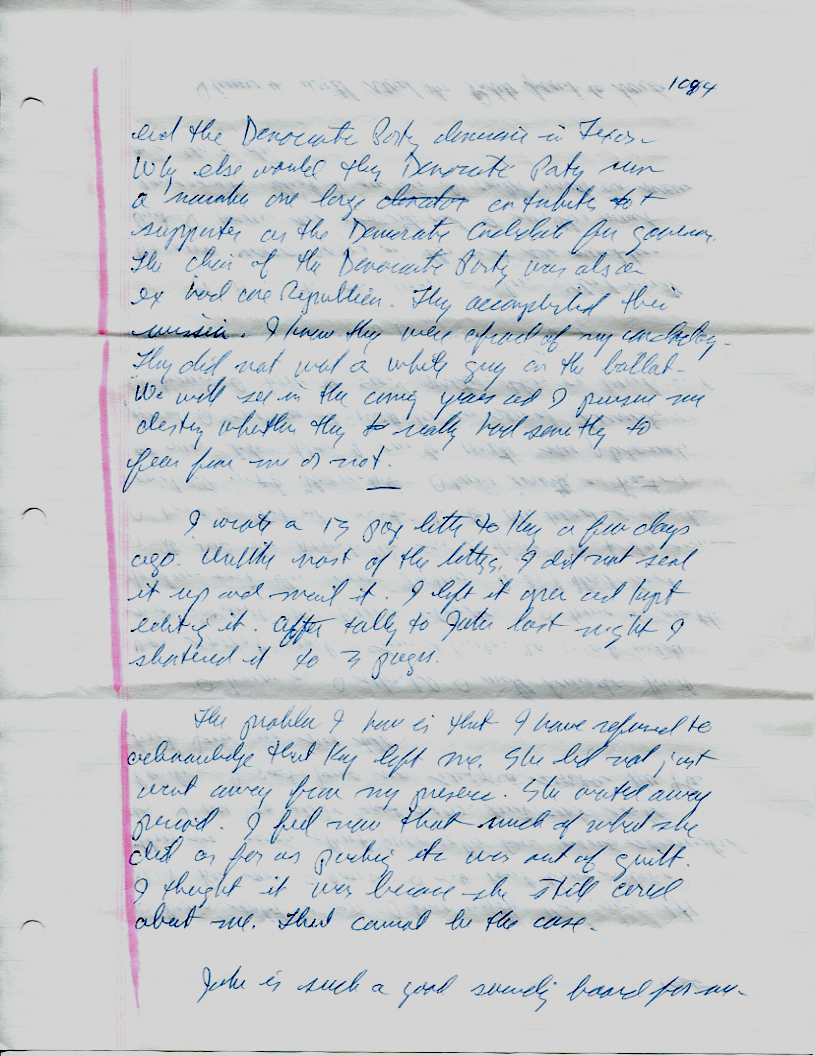 1094
and the Democratic Party demise in Texas.
Why else would they Democratic Party run
a number one large donator contribute to
supporter as the Democratic Candidate for governor.
The chair of the Democratic Party was also an
ex hard core Republican. They accomplished their
mission. I know they were afraid of my candidacy.
They did not want a white guy on the ballot.
We will see in the coming years as I pursue my
destiny whether they to really had something to
fear from me or not.
I wrote a 13 page letter to Kay a few days
ago. Unlike most of the letters, I did not seal
it up and mail it. I left it open and kept
editing it. After talking to John last night I
shortened it to 3 pages.
The problem I have is that I have refused to
acknowledge that Kay left me. She did not just
went away from my presence. She wanted away
period. I feel now that much of what she
did as far as etc was out of guilt.
I thought it was because she still cared
about me. That cannot be the case.
John is such a good sounding board for me.